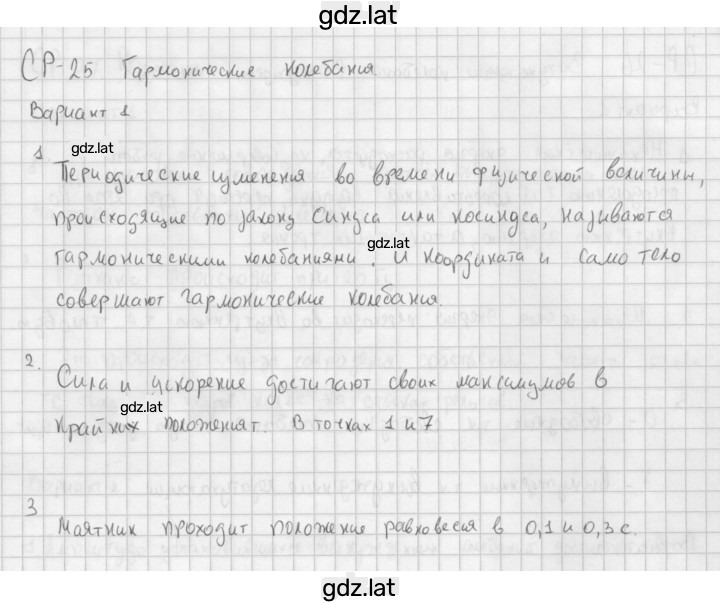 gdz.lat
СР-25 Гармонические колебания
Вариант 1
gdz.lat
1 Периодические изменения во времени физической величины,
происходящие по закону синуса или косинуса, называются
gdz.lat
гармоническими колебаниями. И координата и само тело
совершают гармонические колебания.
2.
Сила и ускорение достигают своих максимумов в
gdz.lat
крайних положеният. В точках 1 и 7
3
Маятник проходит положение равновесия в 0,1 и 0,3 с.
gdz.lat